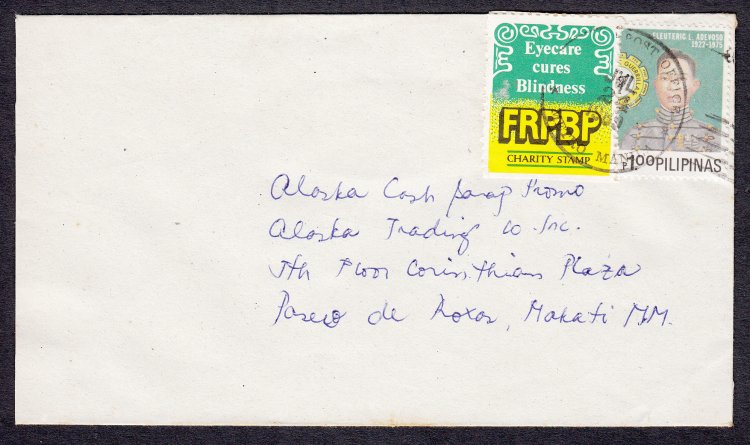 Eyecare
cures
Blindness
FRPBP
CHARITY STAMP
ELEUTERIO L. ADEVOSO
1922-1975
P1.00 PILIPINAS
POST OFFICE
JUL
Alaska Cash parap Promo
Alaska Trading Co Inc.
5th Floor Corinthian Plaza
Paseo de Roxas, Makati M.M.